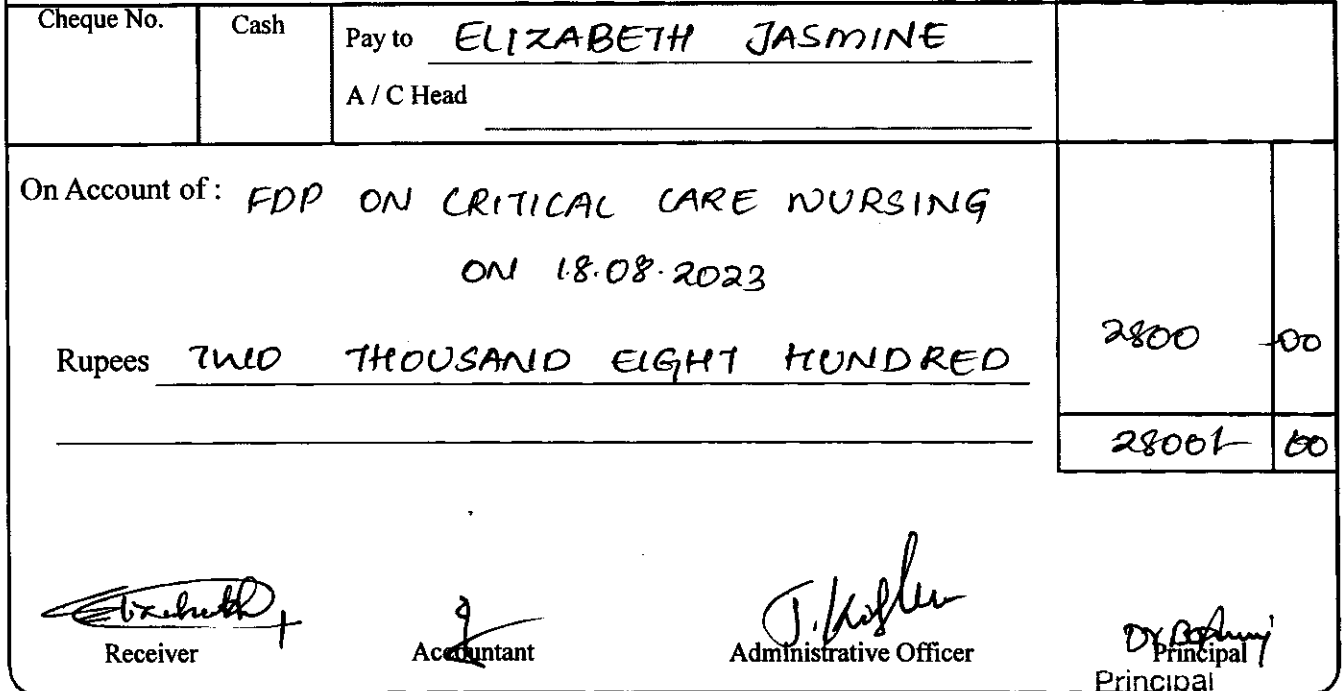 Cheque No. Cash Pay to ELIZABETH JASMINE
A / C Head
On Account of : FDP ON CRITICAL CARE NURSING
ON 18.08.2023
Rupees TWO THOUSAND EIGHT HUNDRED 2800 00
2800/- 00
Elizabeth
Receiver Accountant Administrative Officer Principal
Principal